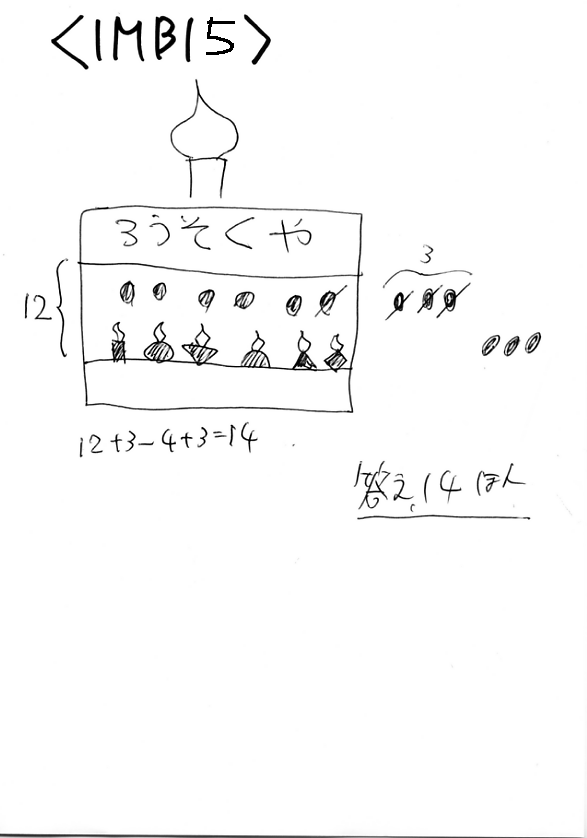 <IMB15>
ろうそくや
3
12
12+3-4+3=14
答え.14ほん